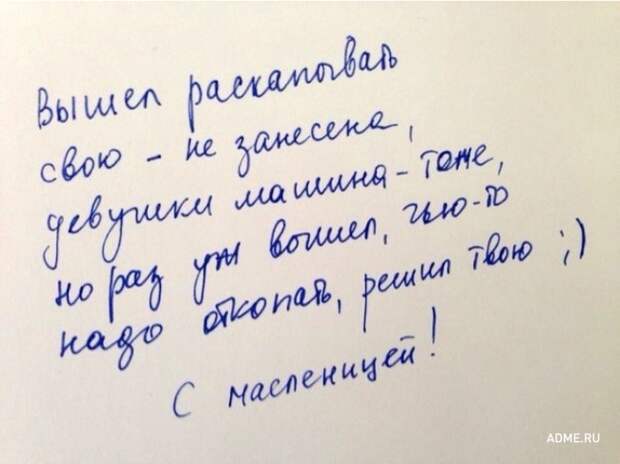 Вышел раскапывать
свою - не занесена,
девушки машина - тоже,
но раз уж вышел, чью-то
надо откопать, решил твою ;)
С масленицей!
ADME.RU